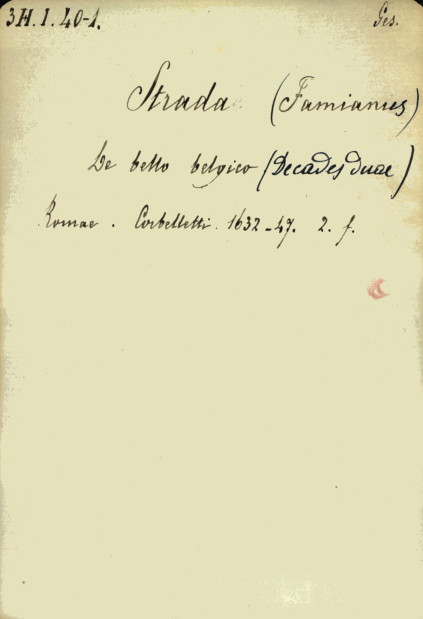 3H.1.40-1. Ges.
Strada (Famianus)
De bello belgico (Decades duae)
Romae. Corbelletti. 1632-47. 2. f.